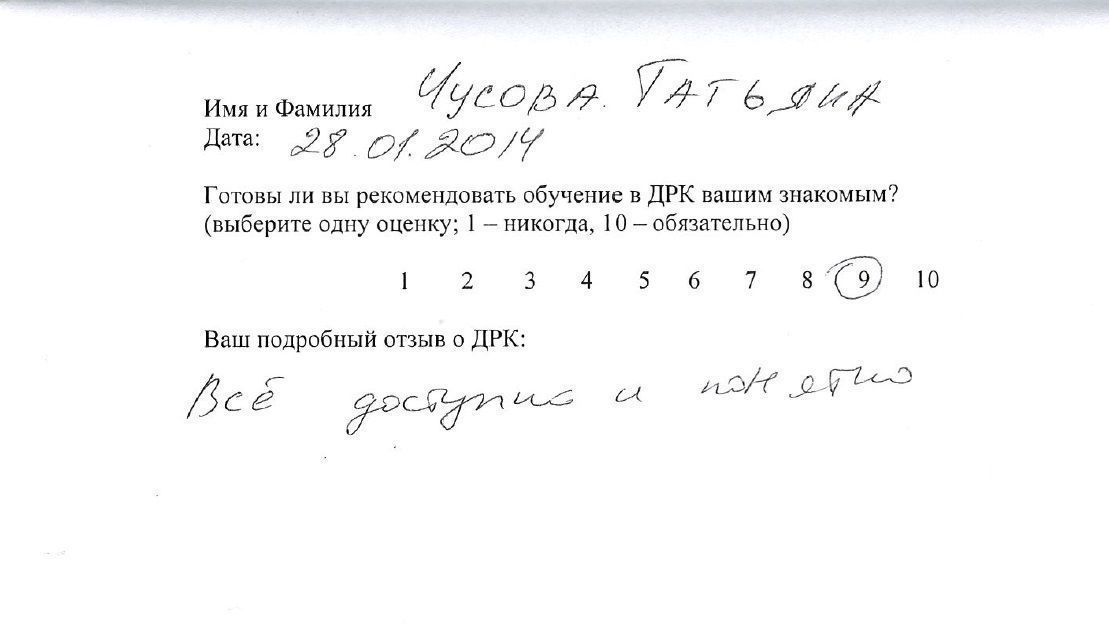 Имя и Фамилия Чусова Татьяна
Дата: 28.01.2014
Готовы ли вы рекомендовать обучение в ДРК вашим знакомым?
(выберите одну оценку; 1 – никогда, 10 – обязательно)
1 2 3 4 5 6 7 8 9 10
Ваш подробный отзыв о ДРК:
Всё доступно и понятно